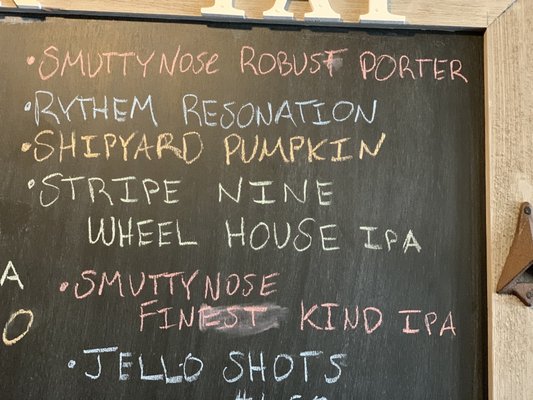 •SMUTTYNOSE ROBUST PORTER
•RYTHEM RESONATION
•SHIPYARD PUMPKIN
•STRIPE NINE
WHEEL HOUSE IPA
•SMUTTYNOSE
FINEST KIND IPA
•JELLO SHOTS